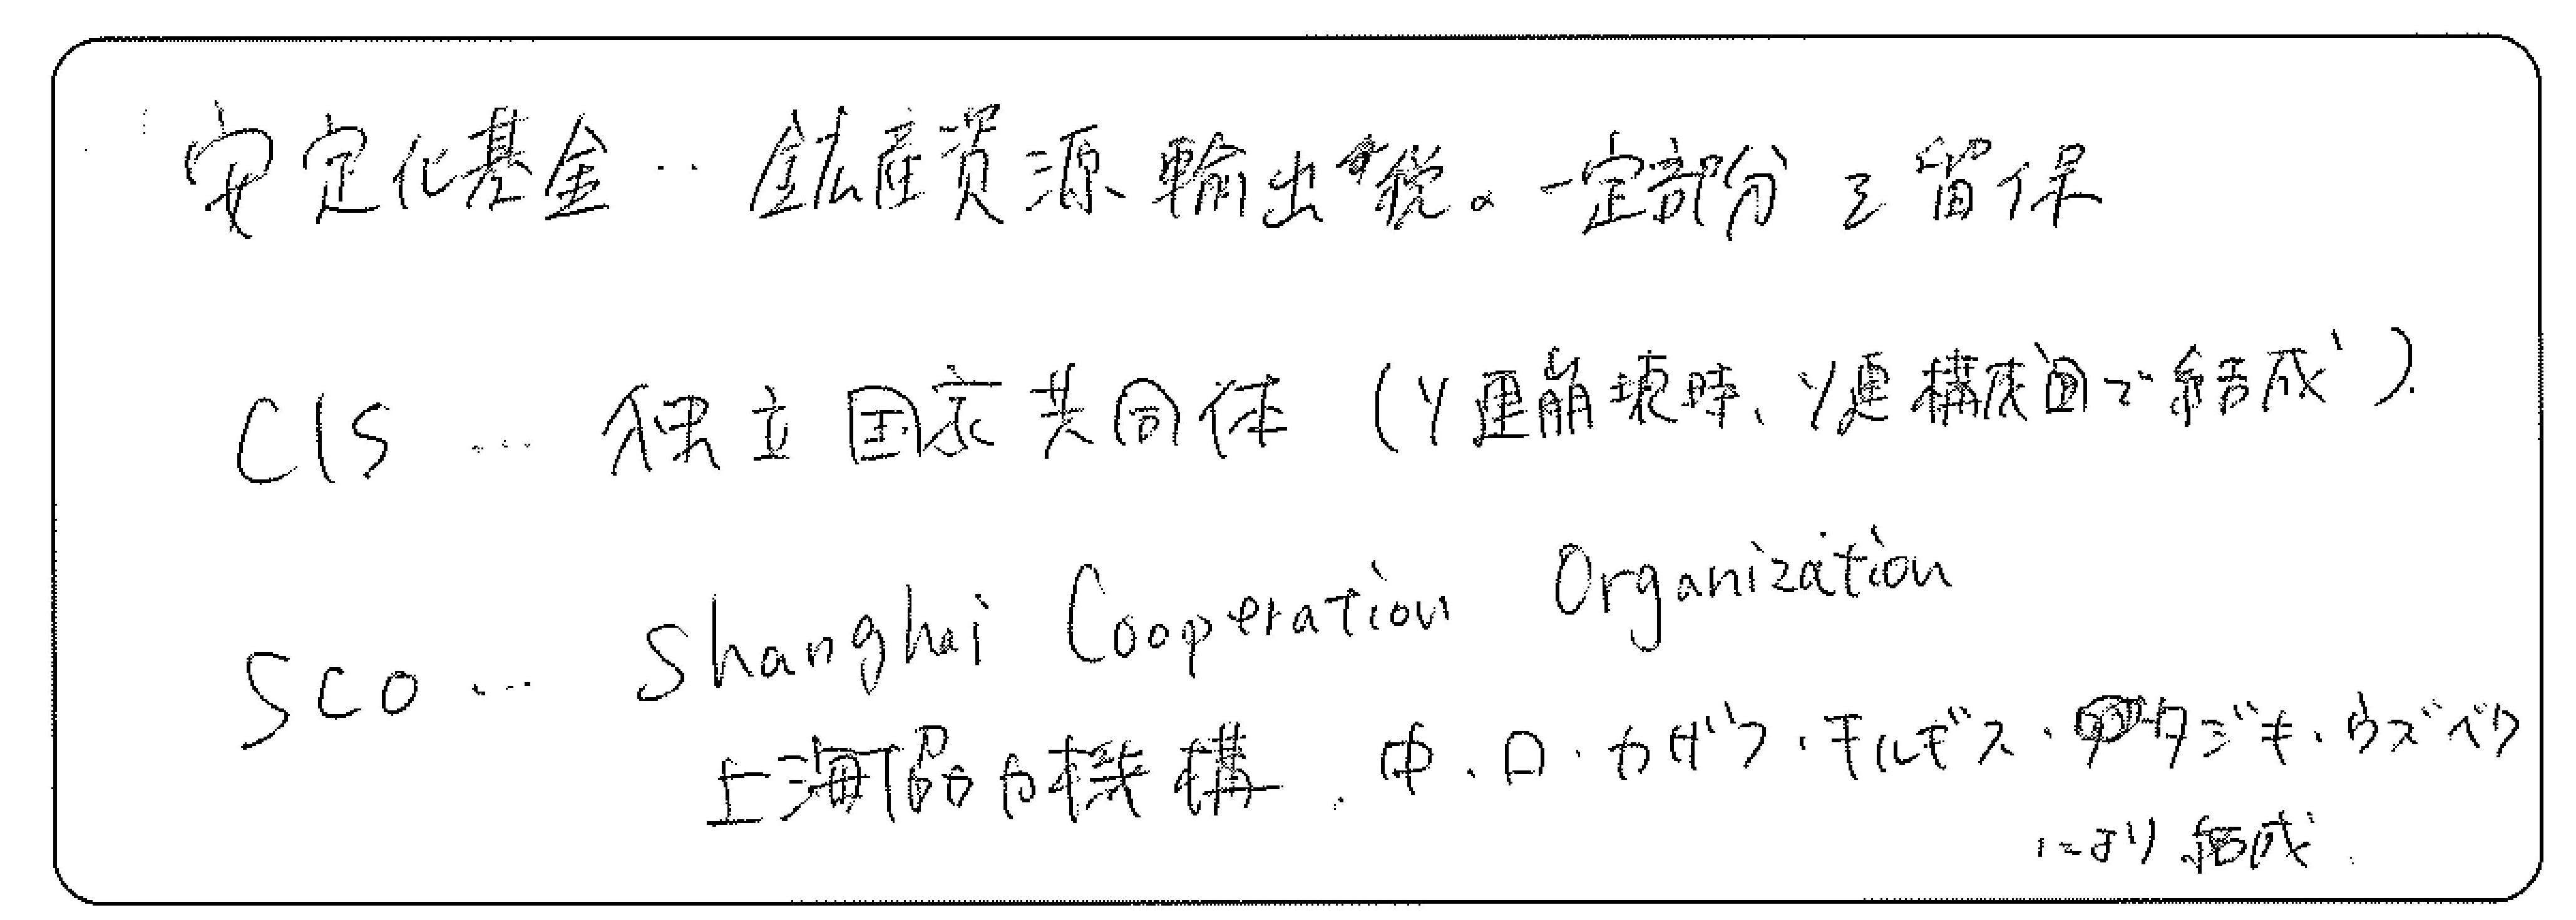 安定化基金‥鉱産資源輸出税の一定部分を留保
CIS … 独立国家共同体 (ソ連崩壊時、ソ連構成国で結成).
SCO … Shanghai Cooperation Organization
上海協力機構. 中・ロ・カザフ・キルギス・タジキ・ウズベク
により結成.